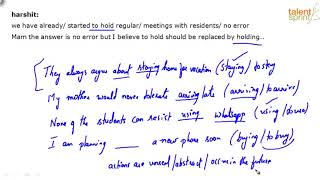 talent
sprint
harshit:
we have already/ started to hold regular/ meetings with residents/ no error
Mam the answer is no error but I believe to hold should be replaced by holding..
They always argue about staying home for vacation (staying / to stay)
My mother would never tolerate arriving late (arriving / to arrive)
None of the students can resist using whatsapp (using / to use)
I am planning ___ a new phone soon (buying / to buy)
actions are unreal / abstract / occur in the future